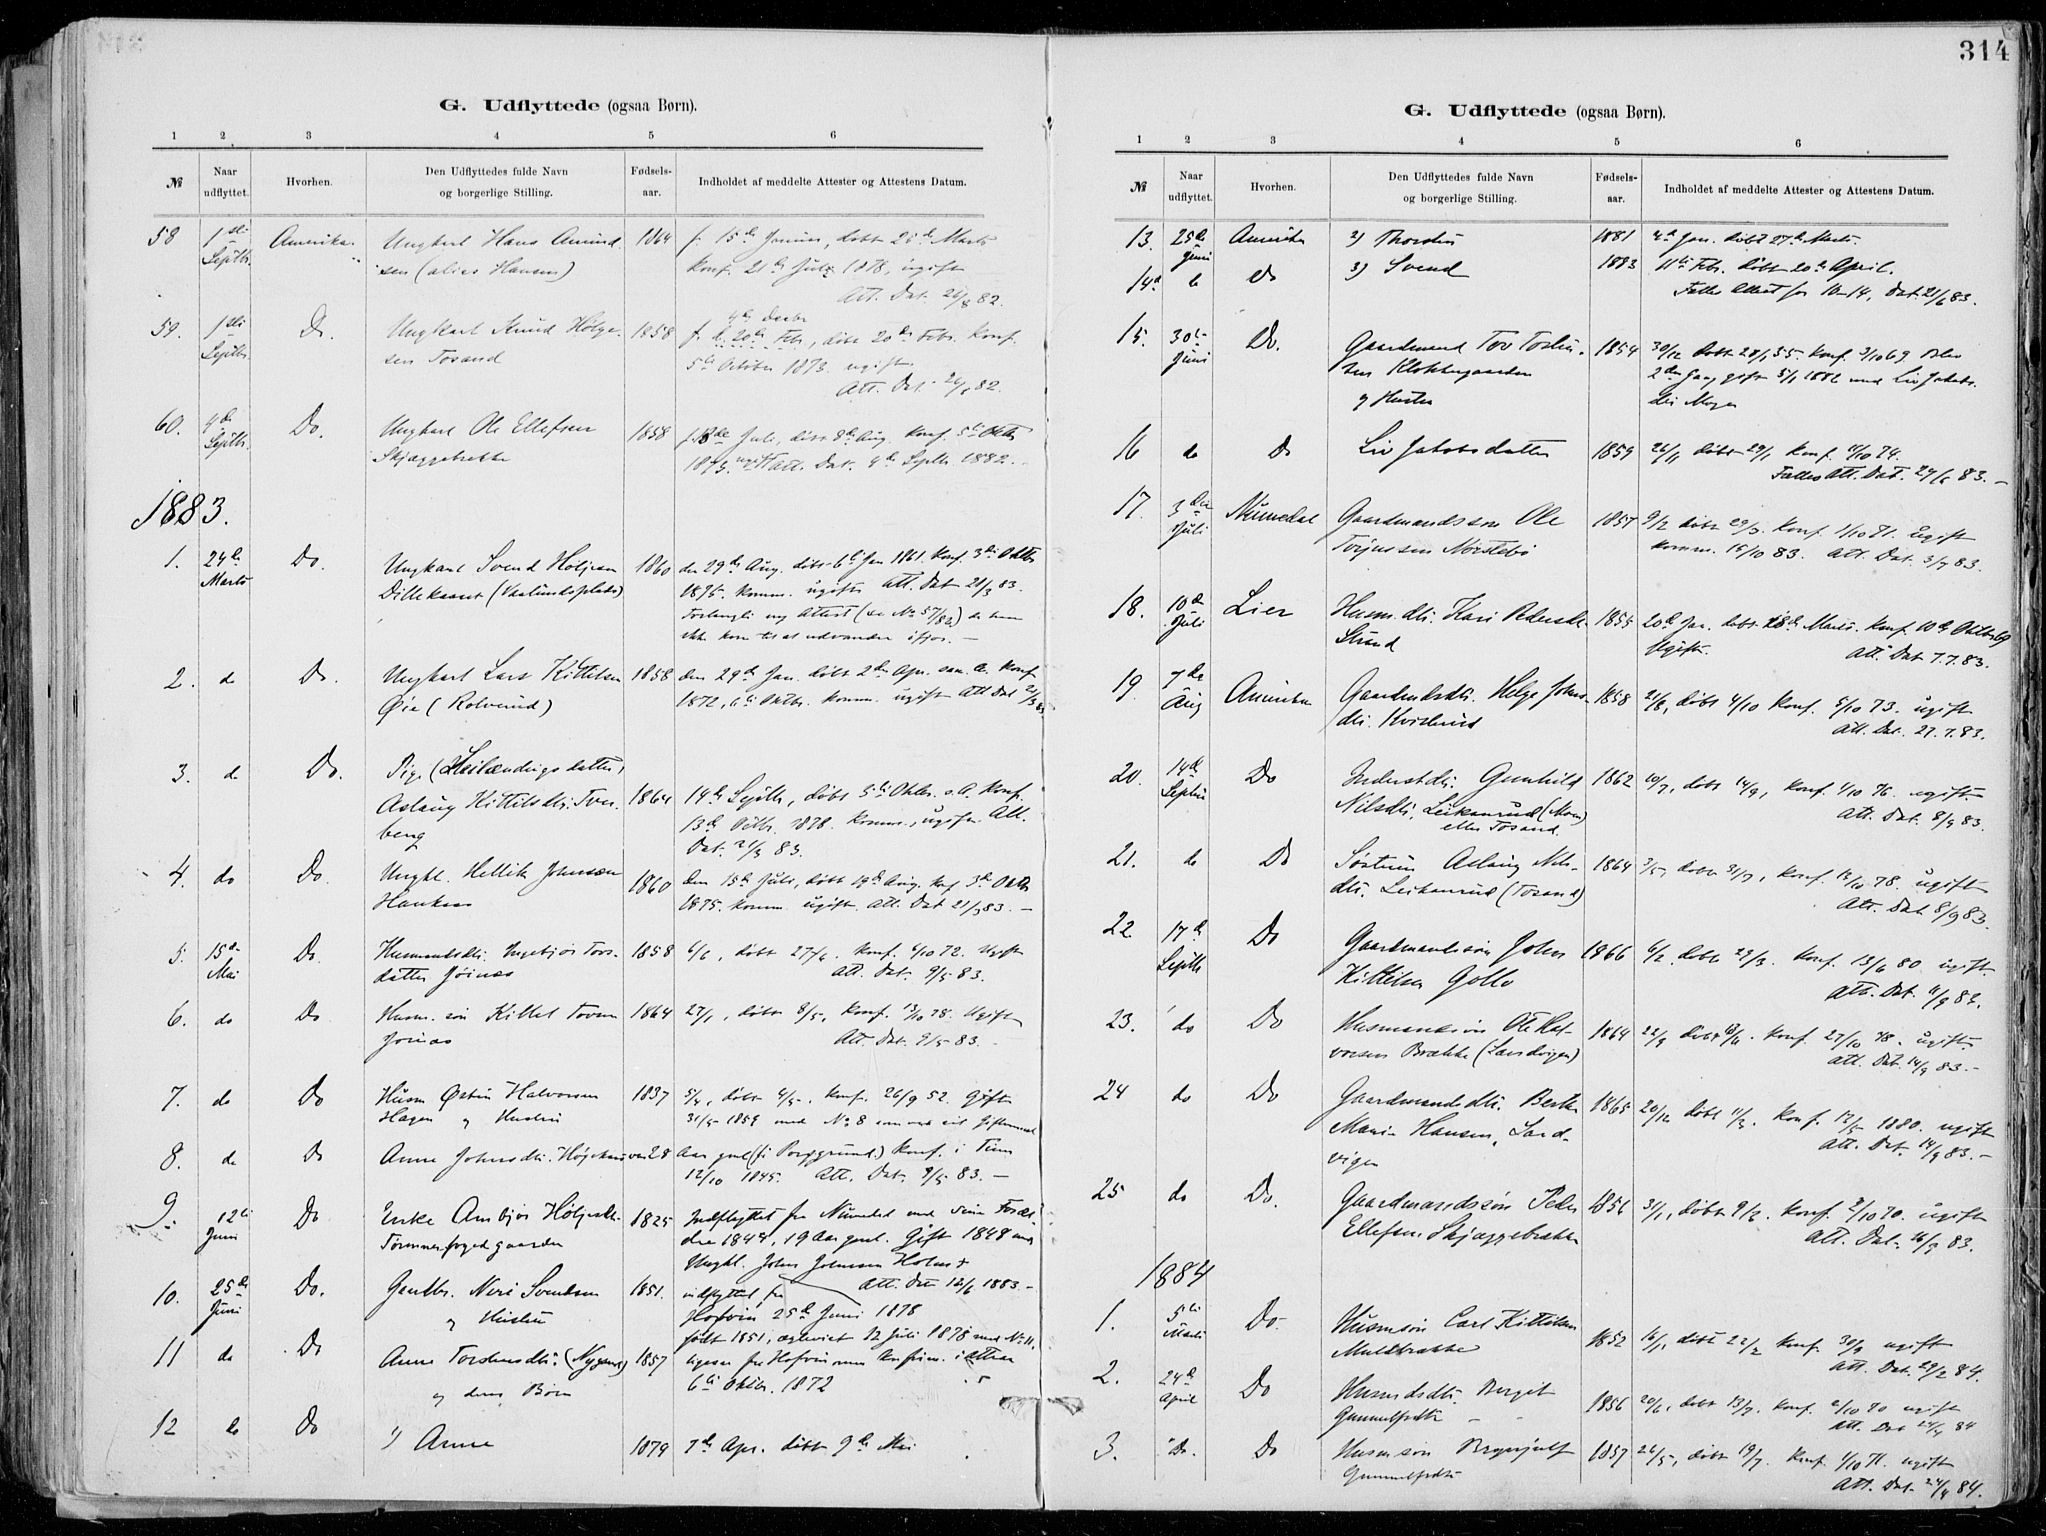 314
G. Udflyttede (ogsaa Børn).
1 2 3 4 5 6
№ Naar udflyttet. Hvorhen. Den Udflyttedes fulde Navn og borgerlige Stilling. Fødsels-aar. Indholdet af meddelte Attester og Attestens Datum.
58 1ste Septbr. Amerika Ungkarl Hans Amund- 1864 15de Januar, døbt Marts
sen (alias Hansen) konf. 21de Juli 1878, ugift
Att. Dat. 26/8 82.
59. 1ste Septbr. Do. Ungkarl Knud Helge- 1858 Febr, døbt 20de Febr. konf.
sen Tosand 5te October 1873. ugift
Att. Dat. 82.
60. 4de Septbr. Do. Ungkarl Ole Ellefsen 1858 Juli, døbt 8de Aug. konf. 5te Oktbr
Skjæggebrekke 1873. ugift Att. Dat. 4de Septbr. 1882.
1883.
1. 24de Marts Do. Ungkarl Svend Holjesen 1860 den 29de Aug. døbt 6te Jan 1861. konf. 3die Oktbr
1875. komm. ugift. Att. Dat 21/3 83.
ny Attest (se No 57/82) da han
ikke kom til at udvandre ifjor. —
2. do Do. Ungkarl Lars Kittilsen 1858 den 29de Jan. døbt 2den Apr. sam. A. konf
Øie ( Rolverud ) 1872, 6te Oktbr. komm. ugift Att Dat 21/3 83
3. do Do. Pige (
Aslaug Kittilsdtr. Tves- 1864 14de Septbr, døbt 5te Oktbr. s. A. konf.
berg 13de Oktbr. 1878. komm., ugift. Att.
Dat. 21/3 83.
4. do Do. Ungkl. Hellik Johnsen 1860 den 15de Juli, døbt 19de Aug. konf 3die Oktbr
Haukaas 1875. komm. ugift. Att. Dat 21/3 83. —
5. 15de Mai Do. Husmandsdtr. Ingebjør Tovs- 1858 6/6, døbt 27/6. konf. 6/10 72. Ugift
datter Jønaas Att. Dat. 9/5 83.
6. do Do Husm. søn Kittel Tovsen 1864 27/1, døbt 8/5, konf. 13/10 78. Ugift
Jønaas Att. Dat. 9/5 83.
7. do Do Husm Østen Halvorsen 1837 døbt 4/5. konf. 26/9 52. Gift
Hagen og Hustru 31/5 1859 med No 8
8. do Do Anne Johnsdtr. 28 Aar gml konf. i Tinn
12/10 1845. Att. Dat. 9/5 83. —
9. 12te Juni Do Enke Ambjør Høljesdtr. 1825 Indflyttet fra Numedal med sine Foræl-
Tømmerfogdgaarden dre 1844, 19 Aar gml. Gift 1848 med
Ungkl. John Johnsen Holm +
Att. Dat 12/6 1883. —
10. 25de Juni Do. Gaardbr. Neri Svendsen 1851. indflyttet fra
og Hustru Hofvin 25de Juni 1878
født 1851, ægteviet 12 Juli 1878 med No 11.
11 do Do Anne Torstensdtr. 1857 ligesaa fra Hofvin
og deres Børn 6te Oktbr. 1872
12 do Do 1) Anne 1879 7de Apr. døbt 9de Mai
G. Udflyttede (ogsaa Børn).
1 2 3 4 5 6
№ Naar udflyttet. Hvorhen. Den Udflyttedes fulde Navn og borgerlige Stilling. Fødsels-aar. Indholdet af meddelte Attester og Attestens Datum.
13. 25de Juni Amerika 2) Thorsten 1881 4de Jan. døbt 27de Marts.
14 do Do 3) Svend 1883 11te Febr. døbt 20de April.
Fælles Attest for 10–14, Dat. 21/6 83.
15. 30te Juni Do. Gaardmand Tov Torsten- 1854 30/12 døbt 28/1 55. konf. 3/10 69 Blev
sen Klokkergaarden 2den Gang gift 5/1 1882 med Liv Jakobs-
og Hustru dtr Mogen
16 do Do Liv Jakobsdatter 1859 26/11 døbt 29/1 konf. 11/10 74.
Fælles Att. Dat. 29/6 83. —
17. 3die Juli Numedal Gaardmandssøn Ole 1857 9/2 døbt 29/3. konf. 1/10 71. ugift
Torjussen Nørstebø komm. 15/10 83. Att. Dat. 3/7 83.
18. 10de Juli Lier Husm.dtr. Kari Pedersdtr. 1855 20de Jan. døbt 18de Marts. konf. 10de Oktbr 69
Strand Ugift. Att. Dat 7.7.83.
19. 7de Aug Amerika Gaardmdsdtr. Helge Johns- 1858 21/8, døbt 4/10 konf. 5/10 73. ugift
dtr. Kvislerud Att. Dat. 27.7.83.
20. 14de Septbr Do Inderstdtr. Gunhild 1862 10/7, døbt 14/9, konf. 1/10 76. ugift.
Nilsdtr. Leikanrud (Moen) Att. Dat. 8/9 83.
eller Tosand.
21. do Do Søsteren Aslaug Nils- 1864 3/5, døbt 31/7, konf. 13/10 78. ugift
dtr. Leikanrud (Tosand) Att. Dat 8/9 83.
22. 17de Septbr Do Gaardmandssøn John 1866 6/2. døbt 29/3. konf. 13/6 80 ugift.
Kittilsen Gollo Att. Dat. 11/9 83.
23. do Do Husmandssøn Ole Hal- 1864 22/9 døbt konf. 27/10 78. ugift.
vorsen Brække (Sandvigen) Att. Dat. 14/9 83. —
24 do Do Gaardmandsdtr. Berthe 1865 20/12 døbt 11/3. konf. 13/5 1880. ugift
Marie Hansen, Sand- Att. Dat. 14/9 83. —
vigen
25 do Do. Gaardmandssøn Peder 1856 3/1, døbt 9/3. konf. 2/10 70. ugift
Ellefsen Skjæggebrække Att. Dat. 16/9 83.
1884
1. 5te Marts Do. Husmsøn Carl Kittilsen 1852 16/1, døbt 22/2 konf. 30/9 ugift
Muldbrække Att. Dat. 29/2 84.
2. 24de April Do Husmdsdtr. Bergit 1856 20/6, døbt 13/7. konf. 2/10 70 ugift
Att. Dat 24/4 84
3. Do. Do Husmsøn Brynjulf 1857 26/5, døbt 19/7. konf. 1/10 71. ugift
Att. Dat. 24/4 84.